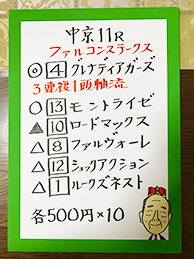 中京11R
ファルコンステークス
◎4グレナディアガーズ
3連複1頭軸流
○13モントライゼ
▲10ロードマックス
△8ファルヴォーレ
△12ショックアクション
△1ルークズネスト
各500円×10